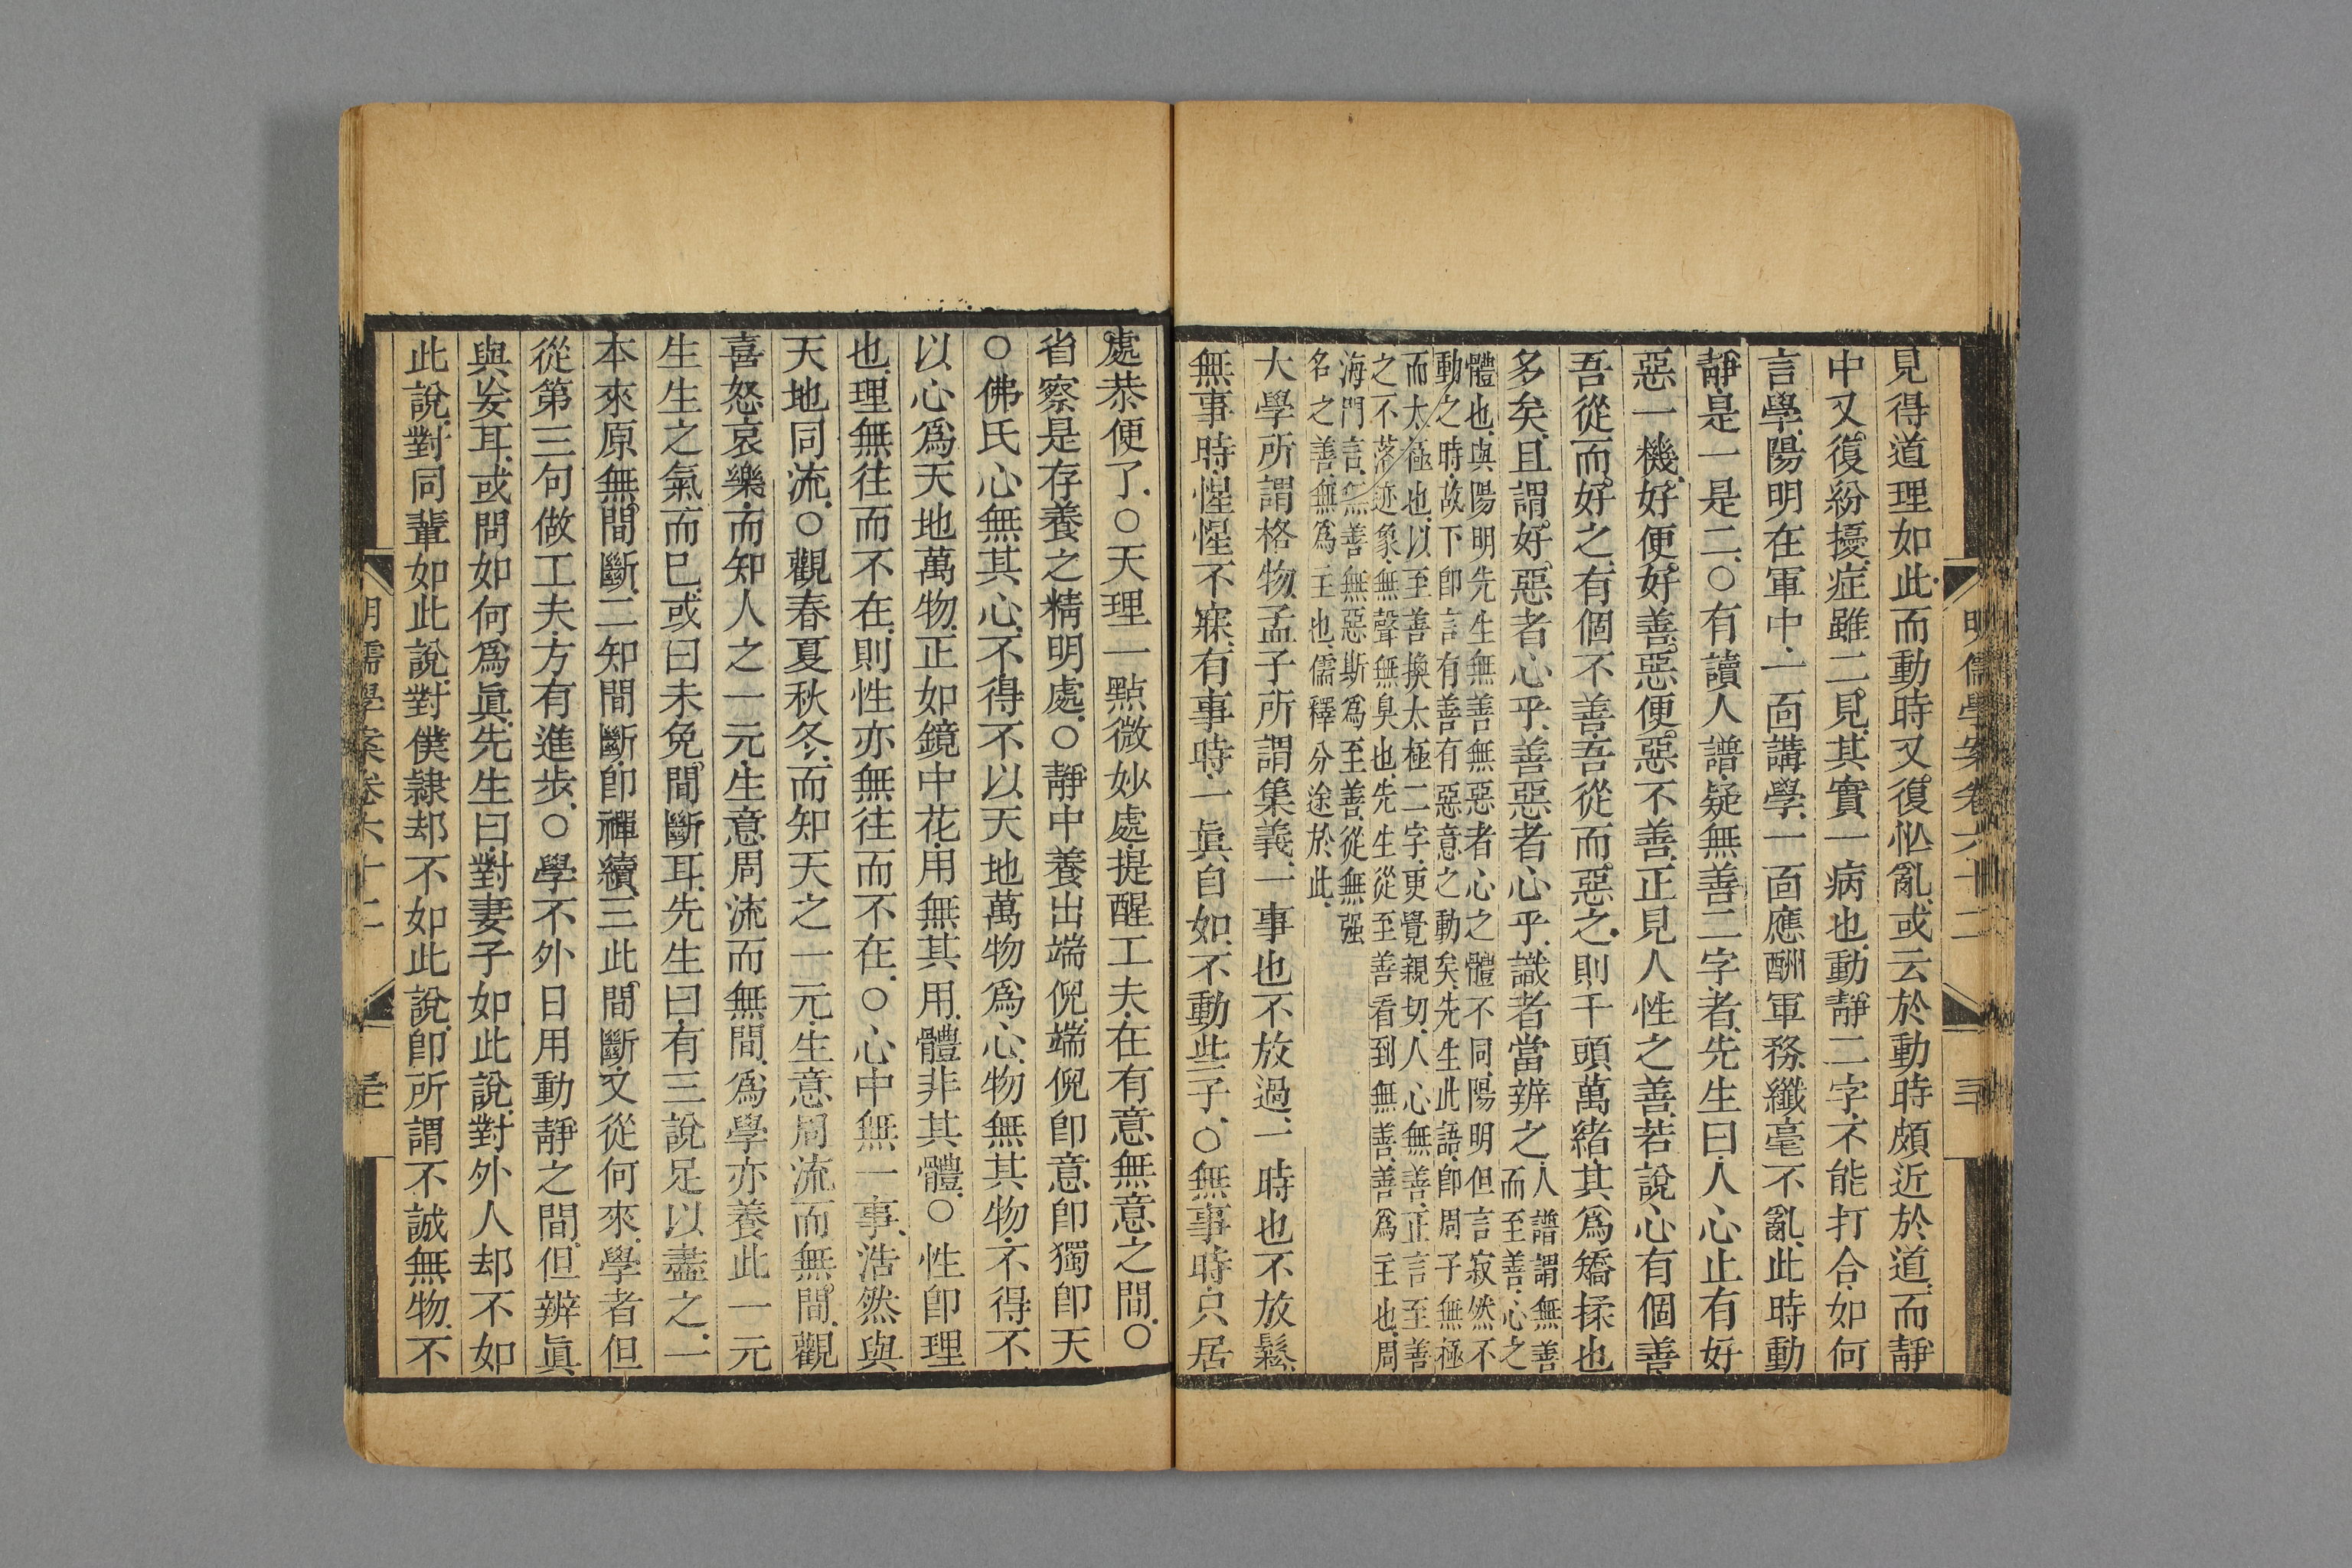 明儒學案卷六十二
三
見得道理如此.而動時又復怂亂.或云於動時頗近於道.而靜
中又復紛擾.症雖二見.其實一病也.動靜二字.不能打合.如何
言學.陽明在軍中.一面講學.一面應酬軍務.纖毫不亂.此時動
靜.是一是二.○有讀人譜.疑無善二字者.先生曰.人心止有好
惡一機.好便好善.惡便惡不善.正見人性之善.若說心有個善.
吾從而好之.有個不善.吾從而惡之.則千頭萬緒.其爲矯揉也
多矣.且謂好惡者心乎.善惡者心乎.識者當辨之.人譜謂無善
而至善.心之
體也.與陽明先生無善無惡者心之體不同.陽明但言寂然不
動之時.故下卽言有善有惡意之動矣.先生此語.卽周子無極
而太極也.以至善換太極二字.更覺親切.人心無善.正言至善
之不落迹象.無聲無臭也.先生從至善看到無善.善爲主也.周
海門言.無善無惡.斯爲至善.從無強
名之善.無爲主也.儒釋分途於此.
大學所謂格物.孟子所謂集義.一事也不放過.一時也不放鬆.
無事時.惺惺不寐.有事時.一眞自如.不動些子.○無事時.只居
處恭便了.○天理一點微妙處.提醒工夫.在有意無意之間.○
省察是存養之精明處.○靜中養出端倪.端倪卽意卽獨卽天
○佛氏心無其心.不得不以天地萬物爲心.物無其物.不得不
以心爲天地萬物.正如鏡中花.用無其用.體非其體.○性卽理
也.理無往而不在.則性亦無往而不在.○心中無一事.浩然與
天地同流.○觀春夏秋冬.而知天之一元.生意周流而無間.觀
喜怒哀樂.而知人之一元.生意周流而無間.爲學亦養此一元
生生之氣而已.或曰未免間斷耳.先生曰.有三說足以盡之.一
本來原無間斷.二知間斷.卽禪續.三此間斷.又從何來.學者但
從第三句做工夫.方有進步.○學不外日用動靜之間.但辨眞
與妄耳.或問如何爲眞.先生曰.對妻子如此說.對外人却不如
此說.對同輩如此說.對僕隸却不如此說.卽所謂不誠無物.不
明儒學案卷六十二